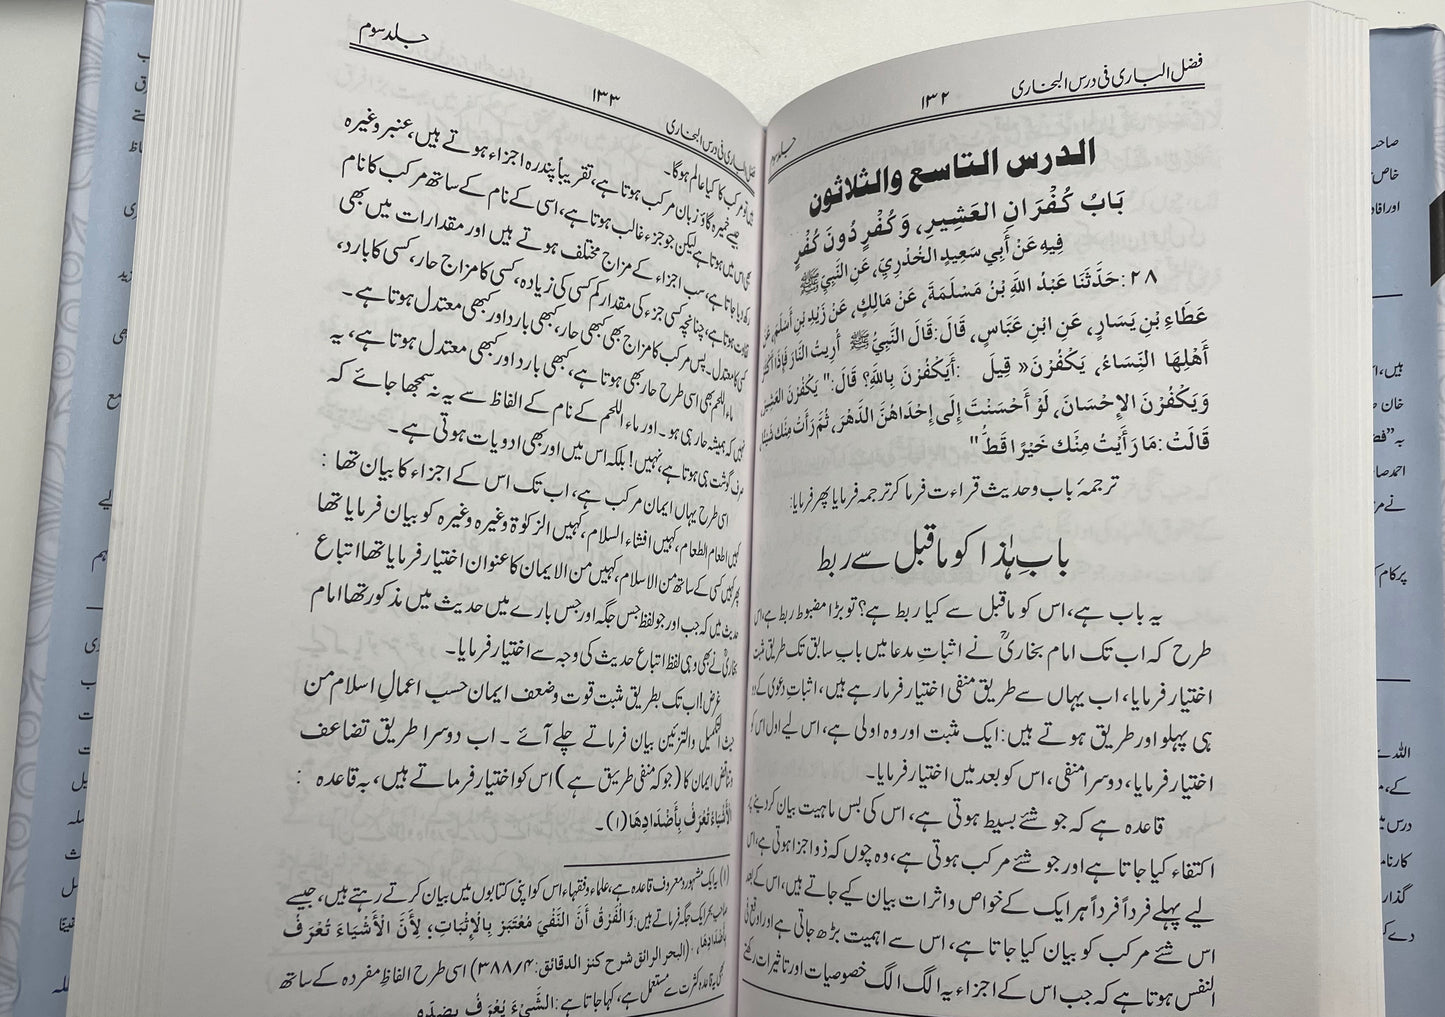 فضل الباری فی درس البخاری
۱۳۲
الدرس التاسع والثلاثون
بَابُ كُفْرَانِ العَشِيرِ، وَكُفْرٍ دُونَ كُفْرٍ
فِيهِ عَنْ أَبِي سَعِيدٍ الخُدْرِيِّ، عَنِ النَّبِيِّ ﷺ
۲۸: حَدَّثَنَا عَبْدُ اللَّهِ بْنُ مَسْلَمَةَ، عَنْ مَالِكٍ، عَنْ زَيْدِ بْنِ أَسْلَمَ، عَنْ
عَطَاءِ بْنِ يَسَارٍ، عَنِ ابْنِ عَبَّاسٍ، قَالَ: قَالَ النَّبِيُّ ﷺ أُرِيتُ النَّارَ فَإِذَا أَكْثَرُ
أَهْلِهَا النِّسَاءُ، يَكْفُرْنَ« قِيلَ :أَيَكْفُرْنَ بِاللَّهِ؟ قَالَ:" يَكْفُرْنَ العَشِيرَ
وَيَكْفُرْنَ الإِحْسَانَ، لَوْ أَحْسَنْتَ إِلَى إِحْدَاهُنَّ الدَّهْرَ، ثُمَّ رَأَتْ مِنْكَ شَيْئًا
قَالَتْ: مَا رَأَيْتُ مِنْكَ خَيْرًا قَطُّ"
ترجمۂ باب وحدیث قراءت فرما کر ترجمہ فرمایا پھر فرمایا:
بابِ ہٰذا کو ماقبل سے ربط
یہ باب ہے، اس کو ماقبل سے کیا ربط ہے؟ تو بڑا مضبوط ربط ہے، اس
طرح کہ اب تک امام بخاریؒ نے اثباتِ مدعا میں بابِ سابق تک طریق مثبت
اختیار فرمایا، اب یہاں سے طریق منفی اختیار فرمارہے ہیں، اثباتِ دعویٰ کے دو
ہی پہلو اور طریق ہوتے ہیں: ایک مثبت اور وہ اولی ہے، اس لیے اول اس کو
اختیار فرمایا، دوسرا منفی، اس کو بعد میں اختیار فرمایا۔
قاعدہ ہے کہ جو شئے بسیط ہوتی ہے، اس کی بس ماہیت بیان کردینے پر
اکتفاء کیا جاتا ہے اور جو شئے مرکب ہوتی ہے، وہ چوں کہ ذو اجزا ہوتی ہے، اس
لیے پہلے فرداً فرداً ہر ایک کے خواص واثرات بیان کیے جاتے ہیں، اس کے بعد
اس شئے مرکب کو بیان کیا جاتا ہے، اس سے اہمیت بڑھ جاتی ہے اور اوقع فی
النفس ہوتا ہے کہ جب اس کے اجزاء یہ الگ الگ خصوصیات اور تاثیرات رکھتے
جلد سوم
۱۳۳
فضل الباری فی درس البخاری
ہیں تو مرکب کا کیا عالم ہوگا۔
جیسے خمیرہ گاؤ زبان مرکب ہوتا ہے، تقریباً پندرہ اجزاء ہوتے ہیں، عنبر وغیرہ
بھی اس میں ہوتا ہے لیکن جو جزء غالب ہوتا ہے، اسی کے نام کے ساتھ مرکب کا نام
رکھ دیا جاتا ہے، سب اجزاء کے مزاج مختلف ہوتے ہیں اور مقدارات میں بھی
تفاوت ہوتا ہے، چنانچہ کسی جزء کی مقدار کم کسی کی زیادہ، کسی کا مزاج حار، کسی کا بارد،
کسی کا معتدل۔ پس مرکب کا مزاج بھی کبھی حار، کبھی بارد اور کبھی معتدل ہوتا ہے۔
ماء اللحم بھی اسی طرح حار بھی ہوتا ہے، کبھی بارد اور کبھی معتدل ہوتا ہے، یہ
نہیں کہ ہمیشہ حار ہی ہو۔ اور ماء اللحم کے نام کے الفاظ سے یہ نہ سمجھا جائے کہ
صرف گوشت ہی ہوتا ہے، نہیں! بلکہ اس میں اور بھی ادویات ہوتی ہے۔
اسی طرح یہاں ایمان مرکب ہے، اب تک اس کے اجزاء کا بیان تھا :
کہیں اطعام الطعام، کہیں افشاء السلام، کہیں الزکوٰۃ وغیرہ وغیرہ کو بیان فرمایا تھا
پھر کہیں کسی کے ساتھ من الاسلام، کہیں من الایمان کا عنوان اختیار فرمایا تھا اتباعِ
حدیث میں کہ جب اور جو لفظ جس جگہ اور جس بارے میں حدیث میں مذکور تھا امام
بخاریؒ نے بھی وہی لفظ اتباع حدیث کی وجہ سے اختیار فرمایا۔
غرض! اب تک بطریق مثبت قوت وضعف ایمان حسب اعمالِ اسلام من
حیث التکمیل والتزئین بیان فرماتے چلے آئے ۔ اب دوسرا طریق تضاعف
ایمان کا (جو کہ منفی طریق ہے) اس کو اختیار فرماتے ہیں، بہ قاعدہ :
الْأَشْيَاءُ تُعْرَفُ بِأَضْدَادِهَا (۱)۔
(۱) یہ ایک مشہور و معروف قاعدہ ہے، علماء وفقہاء اس کو اپنی کتابوں میں بیان کرتے رہتے ہیں، جیسے
صاحب بحر ایک جگہ فرماتے ہیں: وَالْفَرْقُ أَنَّ النَّفْيَ مُعْتَبَرٌ بِالْإِثْبَاتِ؛ لِأَنَّ الْأَشْيَاءَ تُعْرَفُ
بِأَضْدَادِهَا، (البحر الرائق شرح كنز الدقائق: ۳۸۸/۴) اسی طرح الفاظِ مفردہ کے ساتھ
یہ قاعدہ کثرت سے مستعمل ہے، کہا جاتا ہے: الشَّيْءُ يُعْرَفُ بِضِدِّهِ